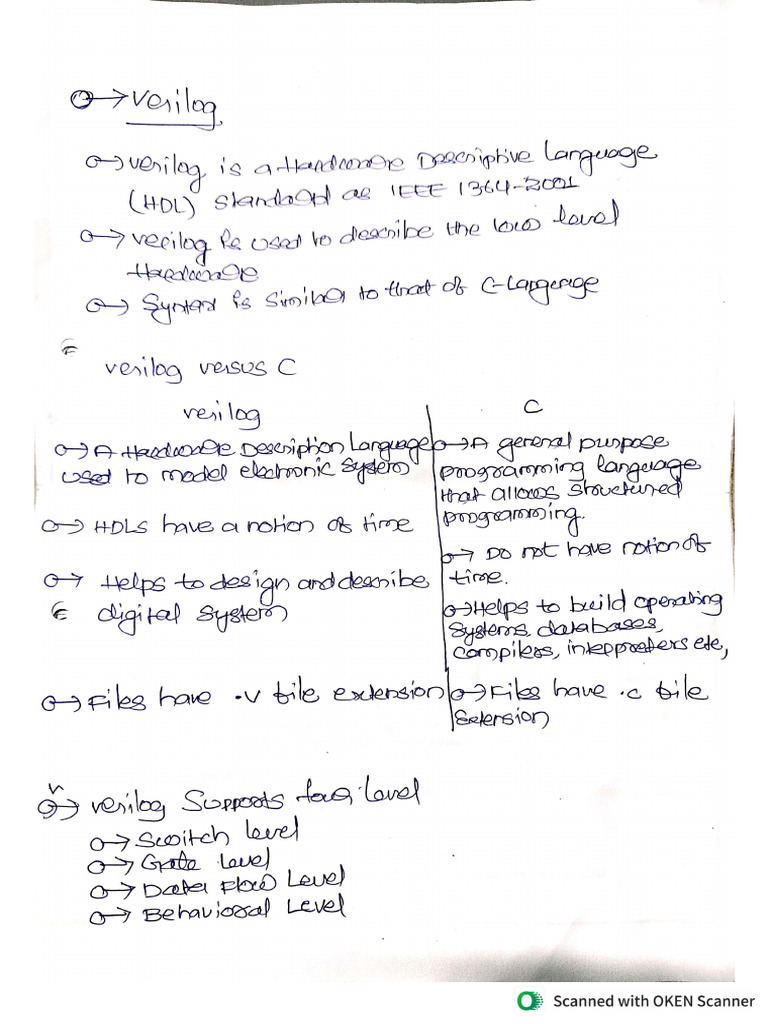 Verilog
Verilog is a Hardware Descriptive Language
(HDL) Standard as IEEE 1364-2001
Verilog is used to describe the low level
Hardware
Syntax is similar to that of C-Language
Verilog versus C
Verilog
C
A Hardware Description Language
used to model electronic system
HDLS have a notion of time
Helps to design and describe
digital system
Files have .V file extension
A general purpose
programming language
that allows structured
programming.
Do not have notion of
time.
Helps to build operating
systems, databases,
compilers, interpreters etc,
Files have .c file
Extension
Verilog Supports four Level
Switch level
Gate Level
Data Flow Level
Behavioral Level
Scanned with OKEN Scanner